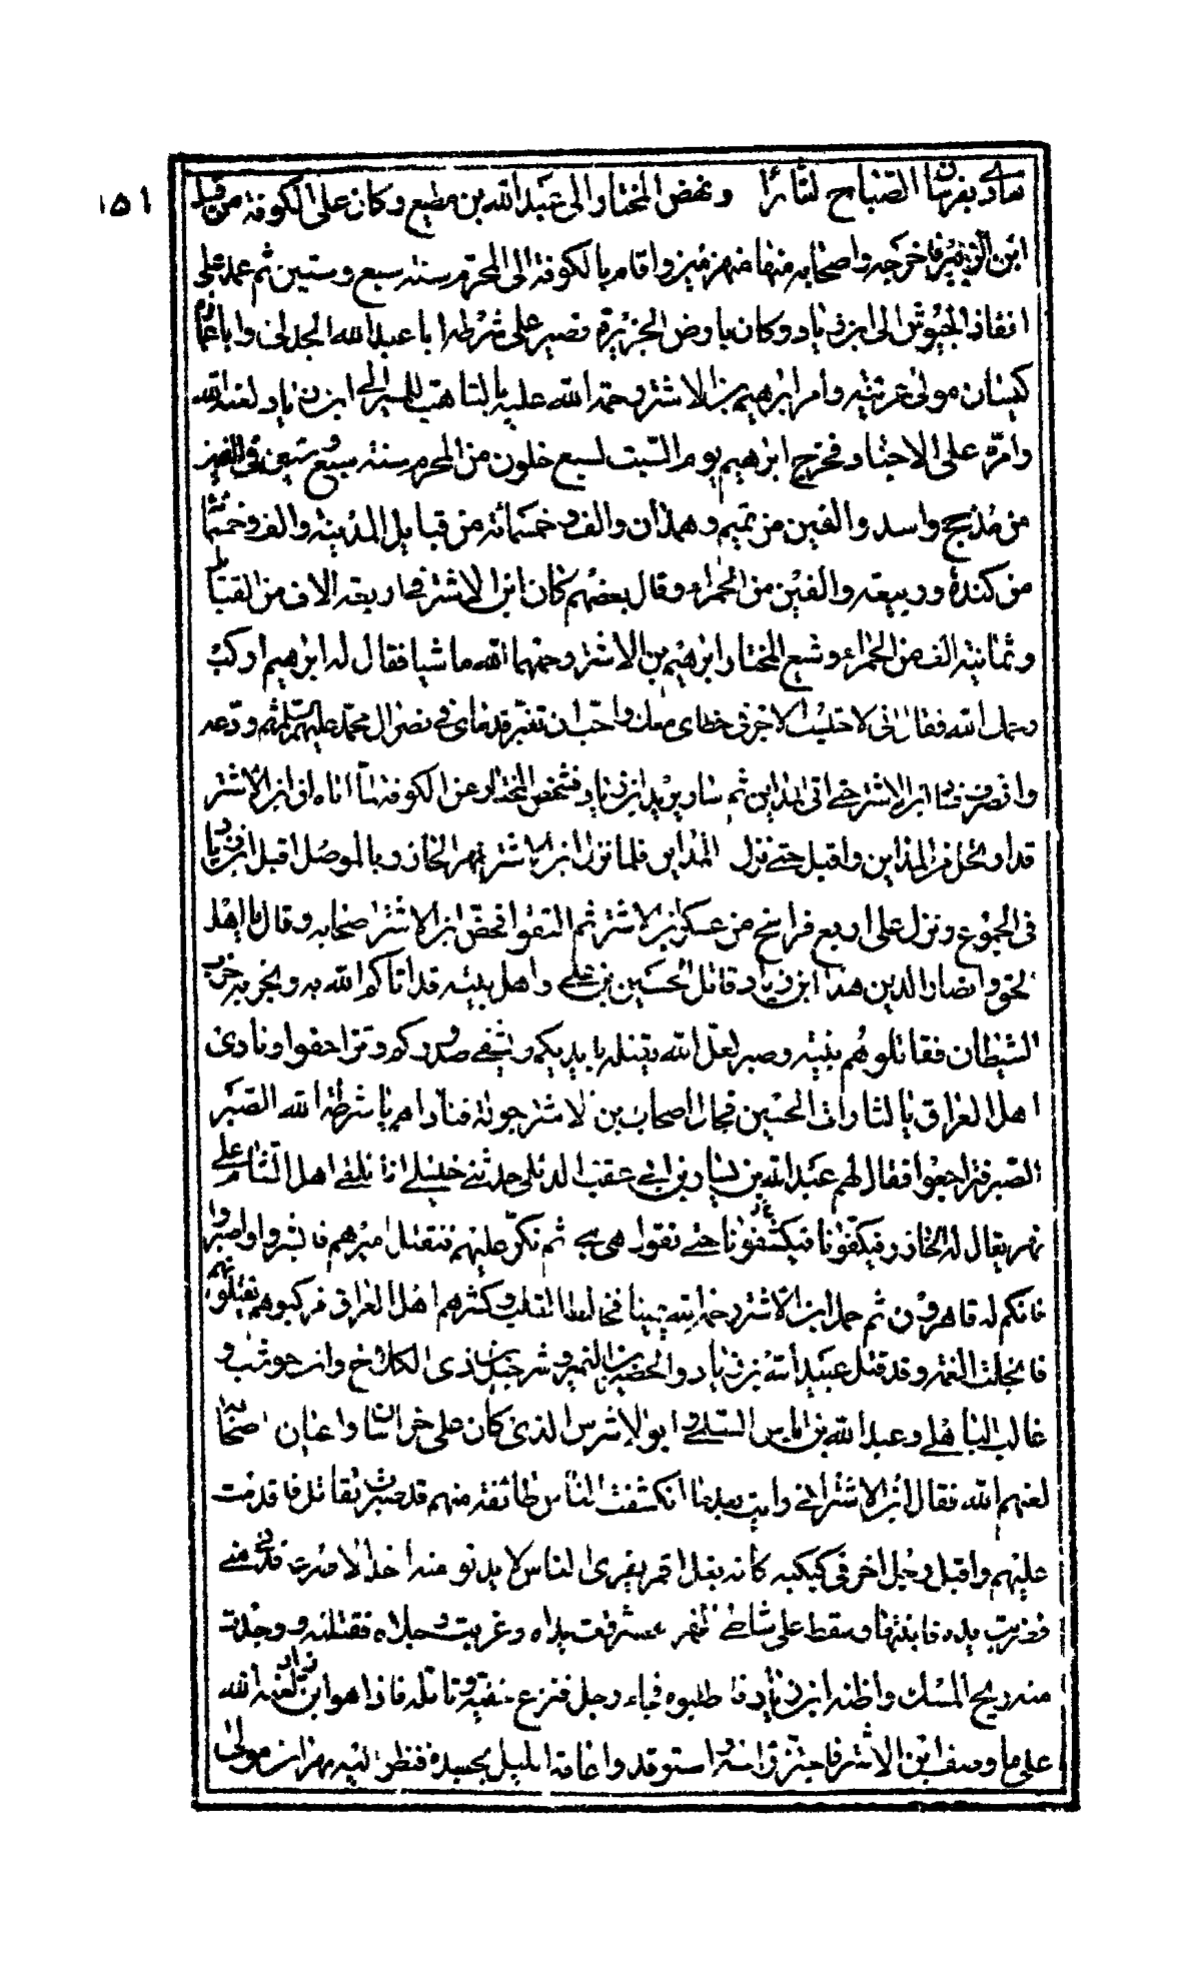 ١٥١
سادى بفرسان الصباح لثائرا ونهض المختار الى عبد الله بن مطيع وكان على الكوفة من قبل
ابن الزبير فاخرجه واصحابه منها منهزمين واقام بالكوفة الى المحرم سنة سبع وستين ثم عمد على
انفاذ الجيوش الى ابن زياد وكان بارض الجزيرة فصير على شرطه ابا عبد الله الجدلى وابا عمارة
كيسان مولى عرينة وامر ابرهيم بن الاشتر رحمة الله عليه بالتاهب للمسير الى ابن زياد لعنه الله
وامّره على الاجناد فخرج ابرهيم يوم السبت لسبع خلون من المحرم سنة سبع وستين فى الفين
من مذحج واسد والفين من تميم وهمدان والف وخمسمائة من قبايل المدينة والف وخمسمائة
من كندة وربيعة والفين من الحمراء وقال بعضهم كان ابن الاشتر فى اربعة الاف من القبائل
وثمانية الف من الحمراء وشيع المختار ابرهيم بن الاشتر رحمهما الله ماشيا فقال له ابرهيم اركب
رحمك الله فقال انى لاحتسب الاجر فى خطاى معك واحب ان تغبر قدماى فى نصر ال محمد عليهم السلم ثم ودعه
وانصرف فسار ابن الاشتر حتى اتى المداين ثم سار يريد ابن زياد فشخص المختار عن الكوفة لما اتاه ان ابن الاشتر
قد ارتحل من المداين واقبل حتى نزل المداين فلما نزل ابن الاشتر نهر الخازر بالموصل اقبل ابن زياد
فى الجموع ونزل على اربع فراسخ من عسكر ابن الاشتر ثم التقوا فحض ابن الاشتر اصحابه وقال يا اهل
الحق وانصار الدين هذا ابن زياد قاتل الحسين بن على واهل بيته قد اتاكم الله به وبحزبه حزب
الشيطان فقاتلوهم بنية وصبر لعل الله يقتله بايديكم ويشفى صدوركم وتزاحفوا ونادى
اهل العراق يا لثارات الحسين فجال اصحاب بن الاشتر جولة فناداهم يا شرطة الله الصبر
الصبر فتراجعوا فقال لهم عبد الله بن يسار بن ابى عقب الدئلى حدثنى خليلى انا نلقى اهل الشام على
نهر يقال له الخازر فيكشفونا حتى نقول هى هى ثم نكر عليهم فنقتل اميرهم فابشروا واصبروا
فانكم لهم قاهرون ثم حمل ابن الاشتر رحمه الله يمينا فخالط القلب وكثرهم اهل العراق فركبوهم يقتلونهم
فانجلت الغمة وقد قتل عبيد الله بن زياد والحصين بن النمير وشرحبيل بن ذى الكلاع وابن حوشب و
غالب الباهلى وعبد الله بن اياس السلمى وابو الاشرس الذى كان على خراسان واعيان اصحابه
لعنهم الله فقال ابن الاشتر انى رايت بعد ما انكشفت الناس طائفة منهم قد صبرت تقاتل فاقدمت
عليهم واقبل رجل اخر فى كبكبة كانه بغل اقمر يفرى الناس لا يدنو منه احد الا صرعه فدنى منى
فضربت يده فابنتها وسقط على شاطئ نهر فشرقت يداه وغربت رجلاه فقتلته ووجدت
منه ريح المسك واظنه ابن زياد فاطلبوه فجاء رجل فنزع خفيه وتامله فاذا هو ابن زياد لعنه الله
على ما وصف ابن الاشتر فاجتز راسه واستوقدوا عامة الليل بجسده فنظر اليه مهران مولى